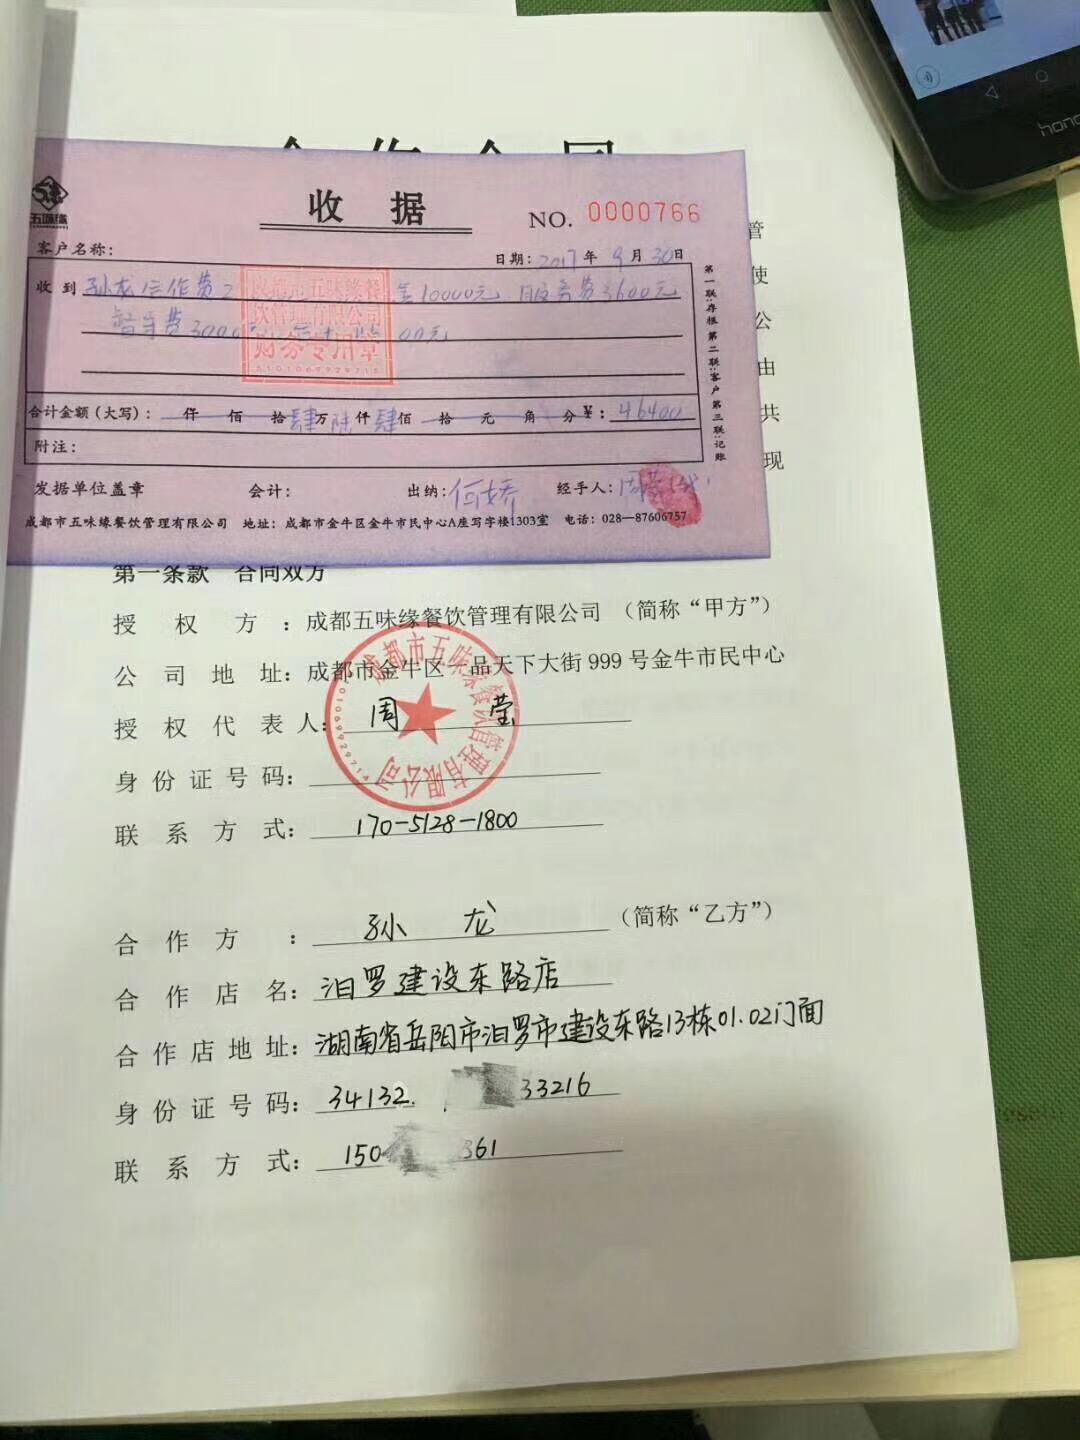 合作合同
五味缘
收 据
NO. 0000766
客户名称：
日期：2017年9月30日
收到 孙龙合作费2 金10000元，服务费3600元
督导费3000 00元
合计金额（大写）： 仟 佰 拾肆万陆仟肆佰 拾 元 角 分 ￥：46400
附注：
发据单位盖章 会计： 出纳：何娇 经手人：周莹
成都市五味缘餐饮管理有限公司 地址：成都市金牛区金牛市民中心A座写字楼1303室 电话：028—87606757
第一联:存根 第二联:客户 第三联:记账
成都市五味缘餐
饮管理有限公司
财务专用章
管
使
公
由
共
现
第一条款 合同双方
授权方：成都五味缘餐饮管理有限公司（简称“甲方”）
公司地址：成都市金牛区一品天下大街999号金牛市民中心
授权代表人：周莹
身份证号码：
联系方式：170-5128-1800
成都市五味缘餐饮管理有限公司
合作方：孙龙（简称“乙方”）
合作店名：汨罗建设东路店
合作店地址：湖南省岳阳市汨罗市建设东路13栋01.02门面
身份证号码：34132 33216
联系方式：150 361
honor